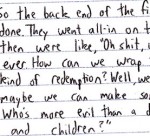 So the back end of the fi
done. They went all-in on t
then were like, "Oh shit, u
ever. How can we wrap
kind of redemption? Well, we
maybe we can make so
Who's more evil than a d
and children?"